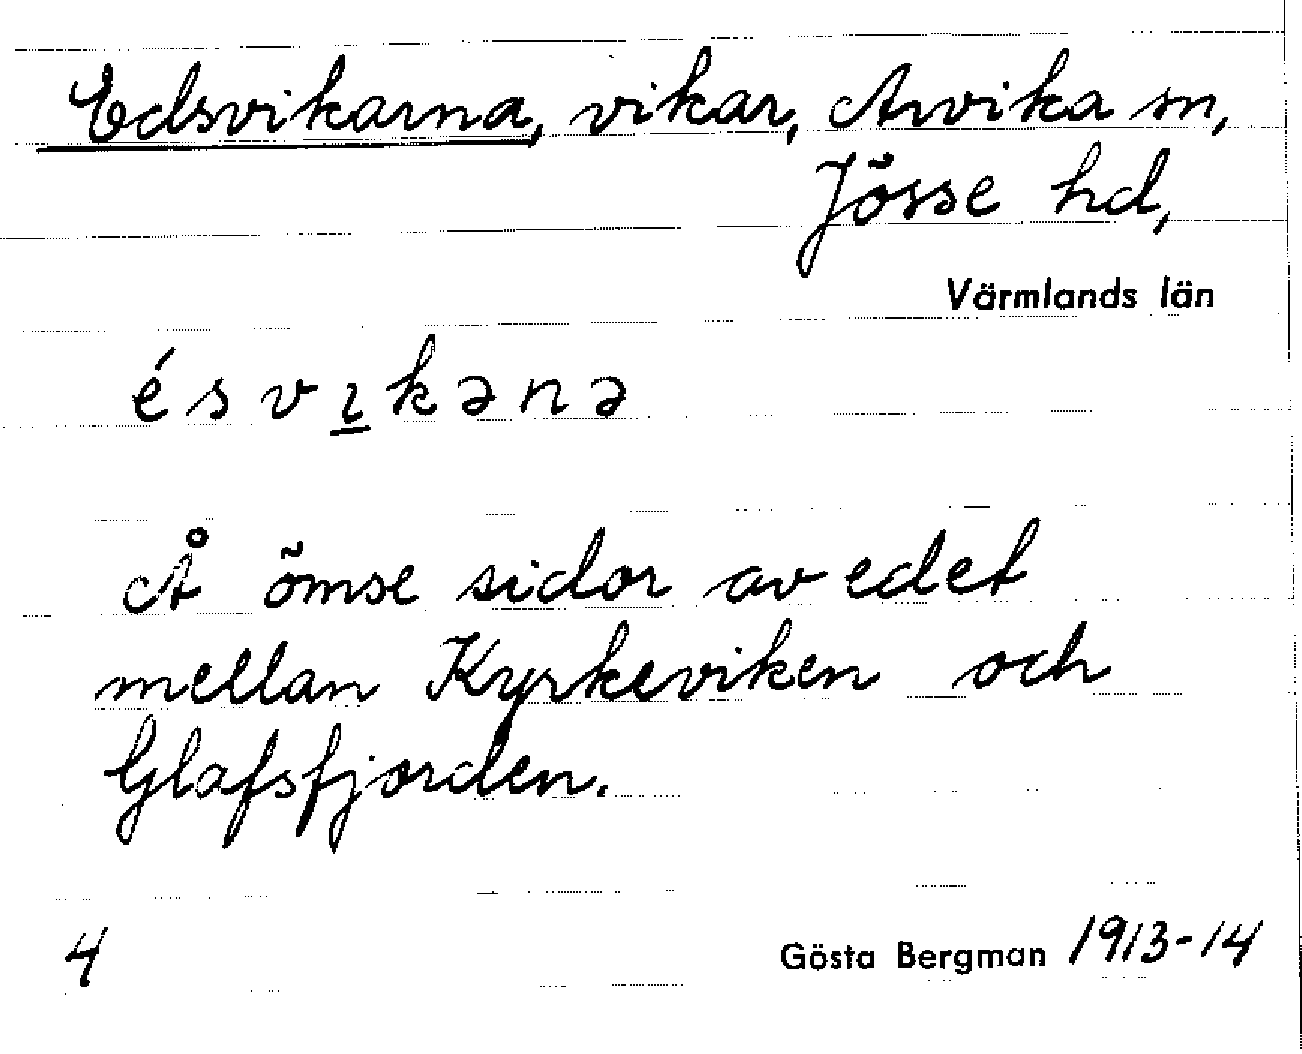 Edsvikarna, vikar, Arvika sn,
Jösse hd,
Värmlands län
é s v ɪ̲ k ə n ə
Å ömse sidor av edet
mellan Kyrkeviken och
Glafsfjorden.
4 Gösta Bergman 1913-14